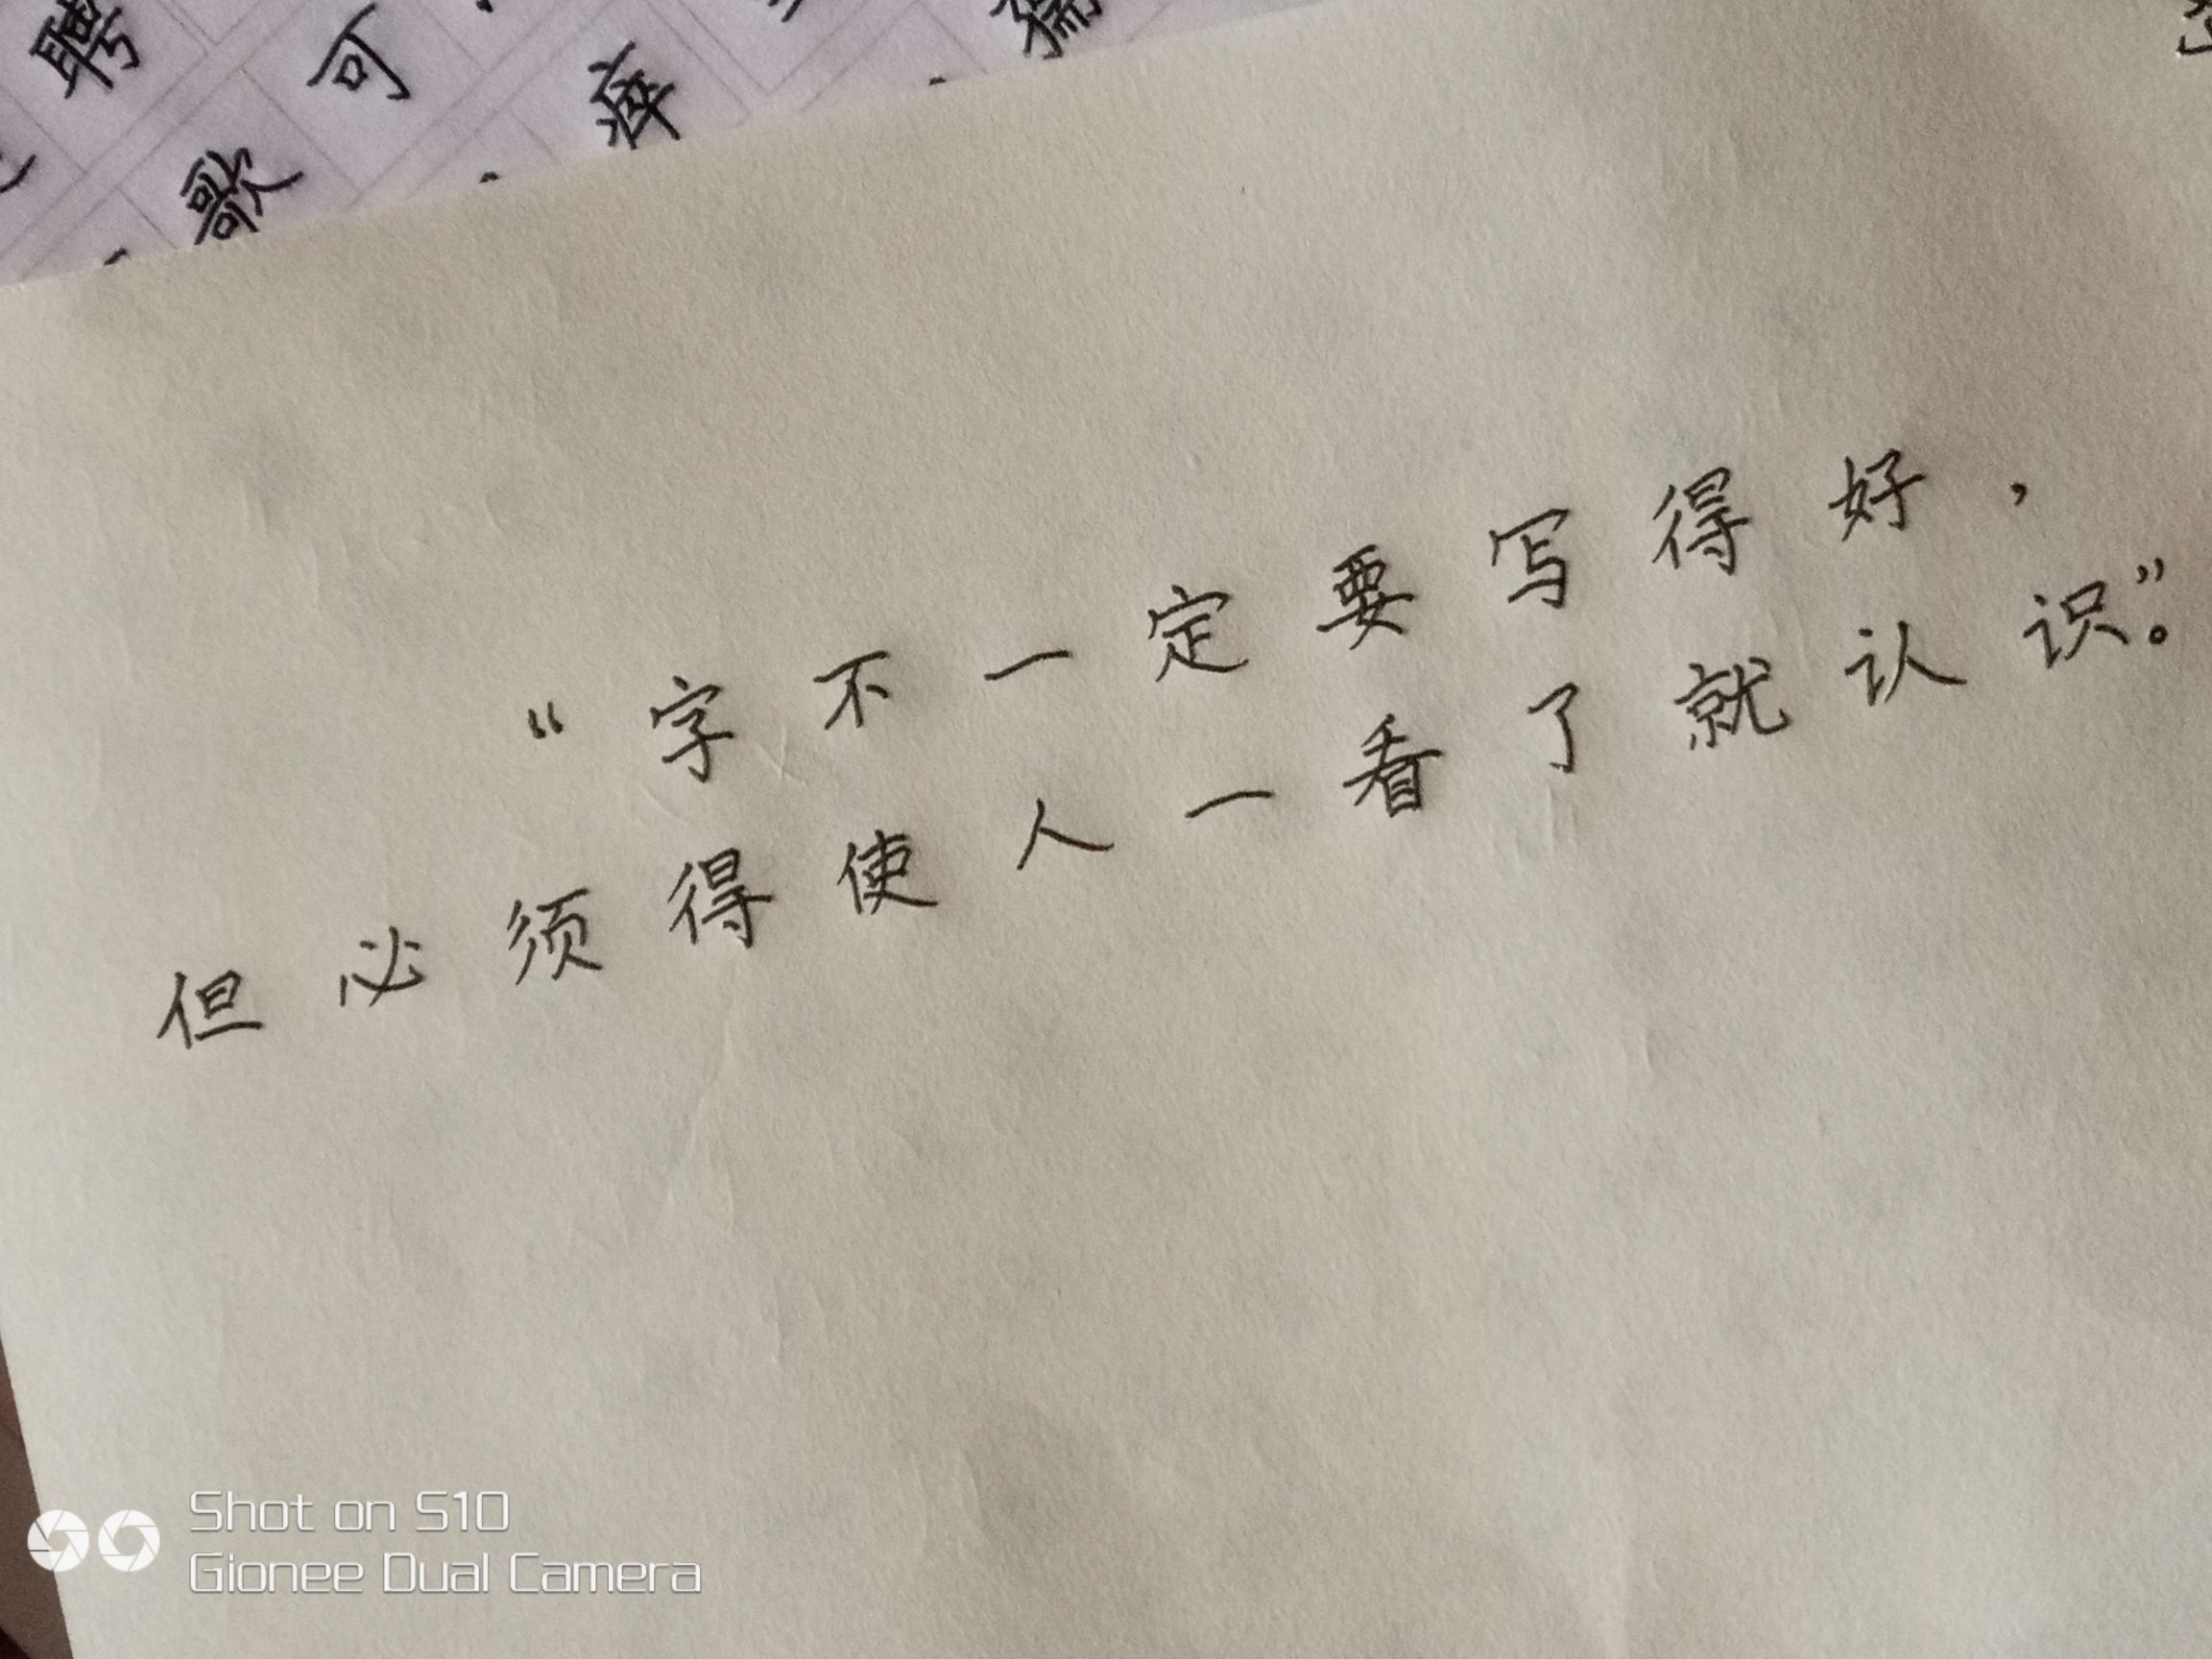 聘 可
歌 瘁
“字不一定要写得好，
但必须得使人一看了就认识”。
Shot on S10
Gionee Dual Camera